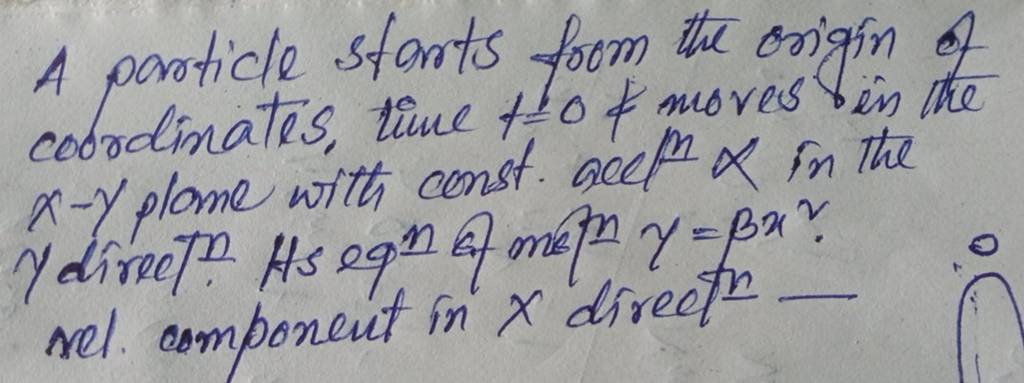 A particle starts from the origin of
coordinates, time t=0 & moves in the
x-y plane with const. accⁿ α in the
y directⁿ. Its eqⁿ of motⁿ y = βx².
vel. component in x directⁿ —